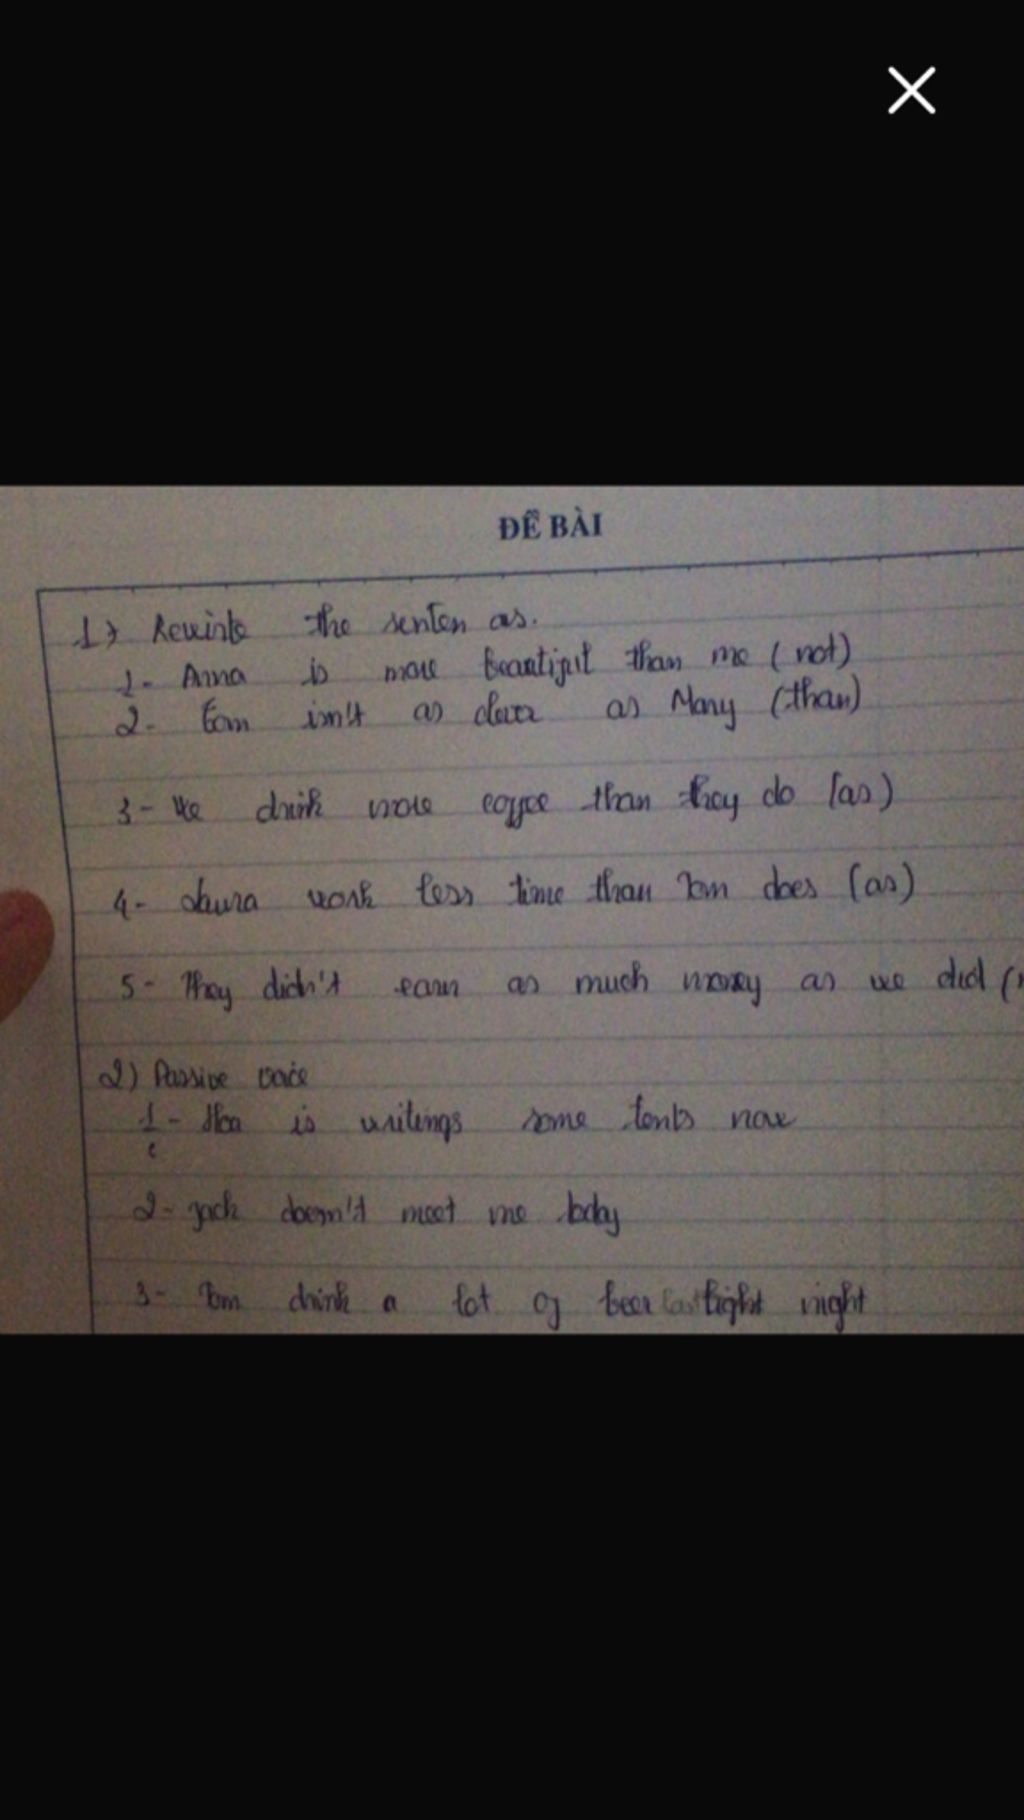 ĐỀ BÀI
1) the senten as.
1- Anna is more beautiful than me (not)
2- Tom isn't as clever as Mary (than)
3- We drink more coffee than they do (as)
4- Laura work less time than Tom does (as)
5- They didn't earn as much money as we did (
2) Passive voice
1- Hoa is writings some now
2- Jack doesn't meet me today
3- Tom drink a lot of beer last night